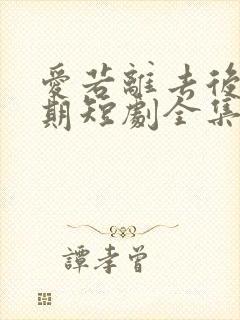 愛若離去後
期短劇全集
譚孝曾